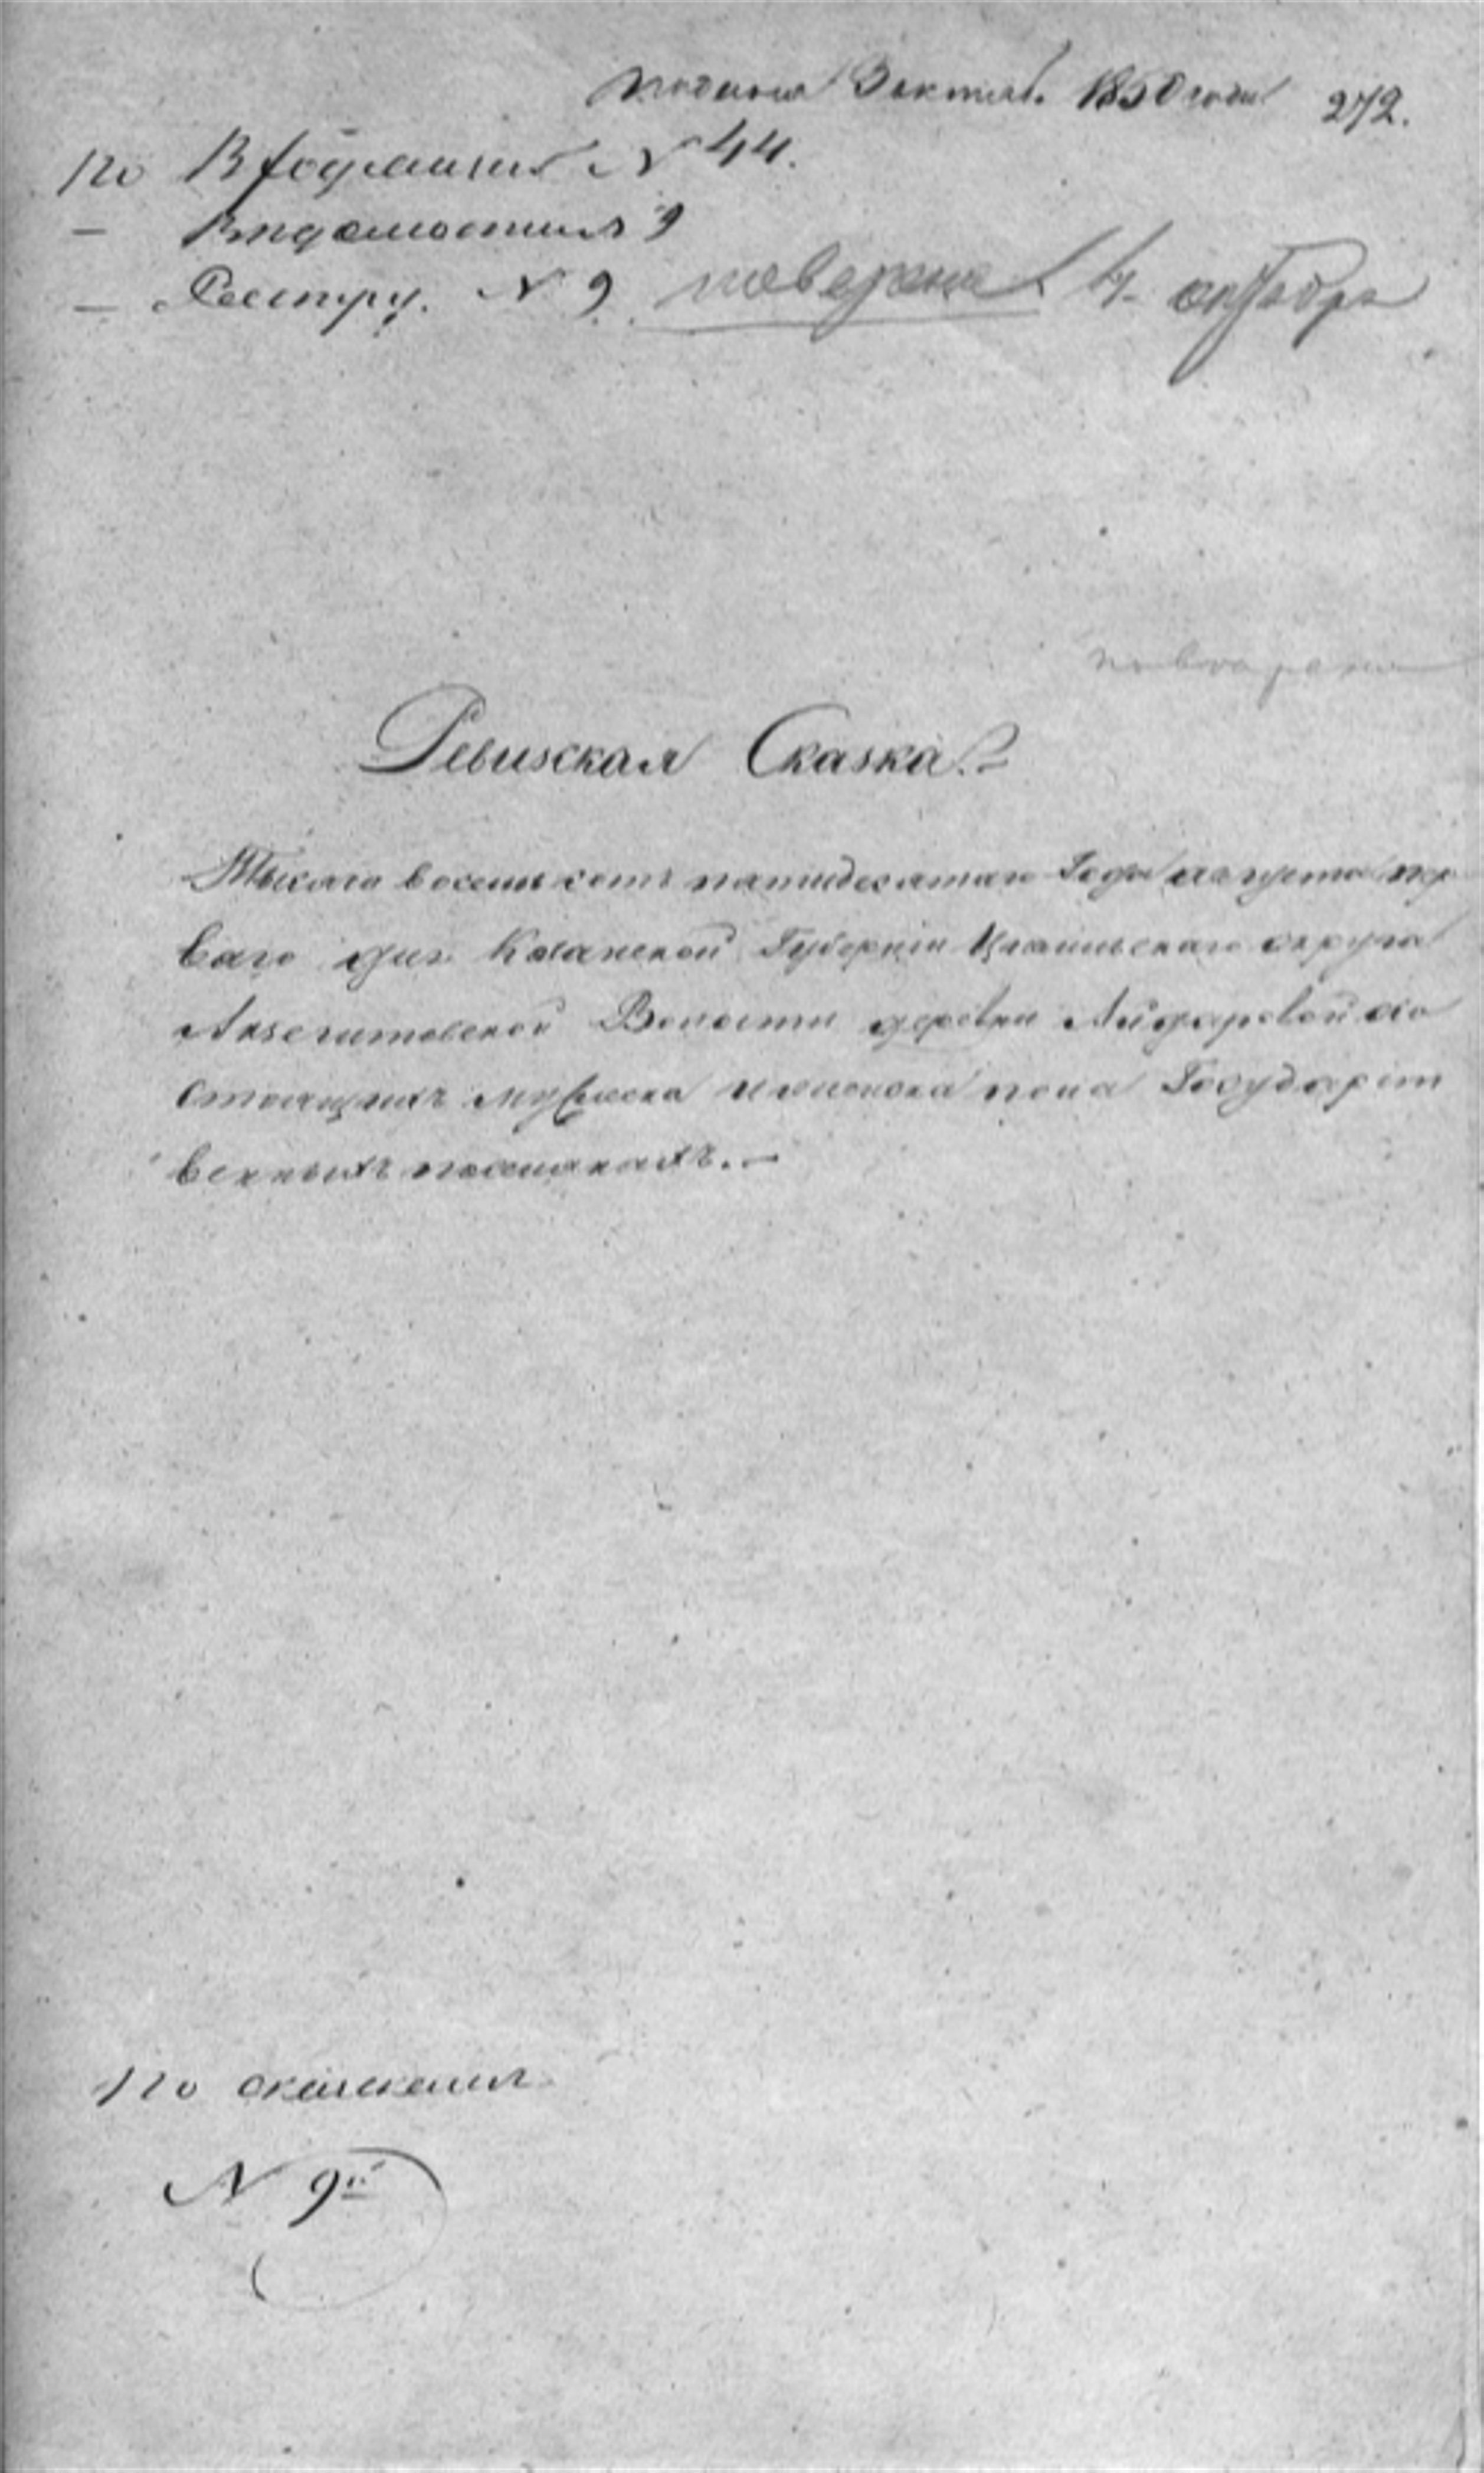 подана 3 октяб. 1850 года 272.
По В N 44.
— Ведомостям 9
— Реестру. N 9 поверена 4 октября
поверена
Ревизская Сказка.
Тысяча восемь сотъ пятидесятаго Года августа пер
ваго дня Казанской Губернiи Цивильскаго округа
Волости деревни Айдаровой о со
стоящихъ мужеска и женска пола Государст
венныхъ поселянахъ.—
По
N 9й